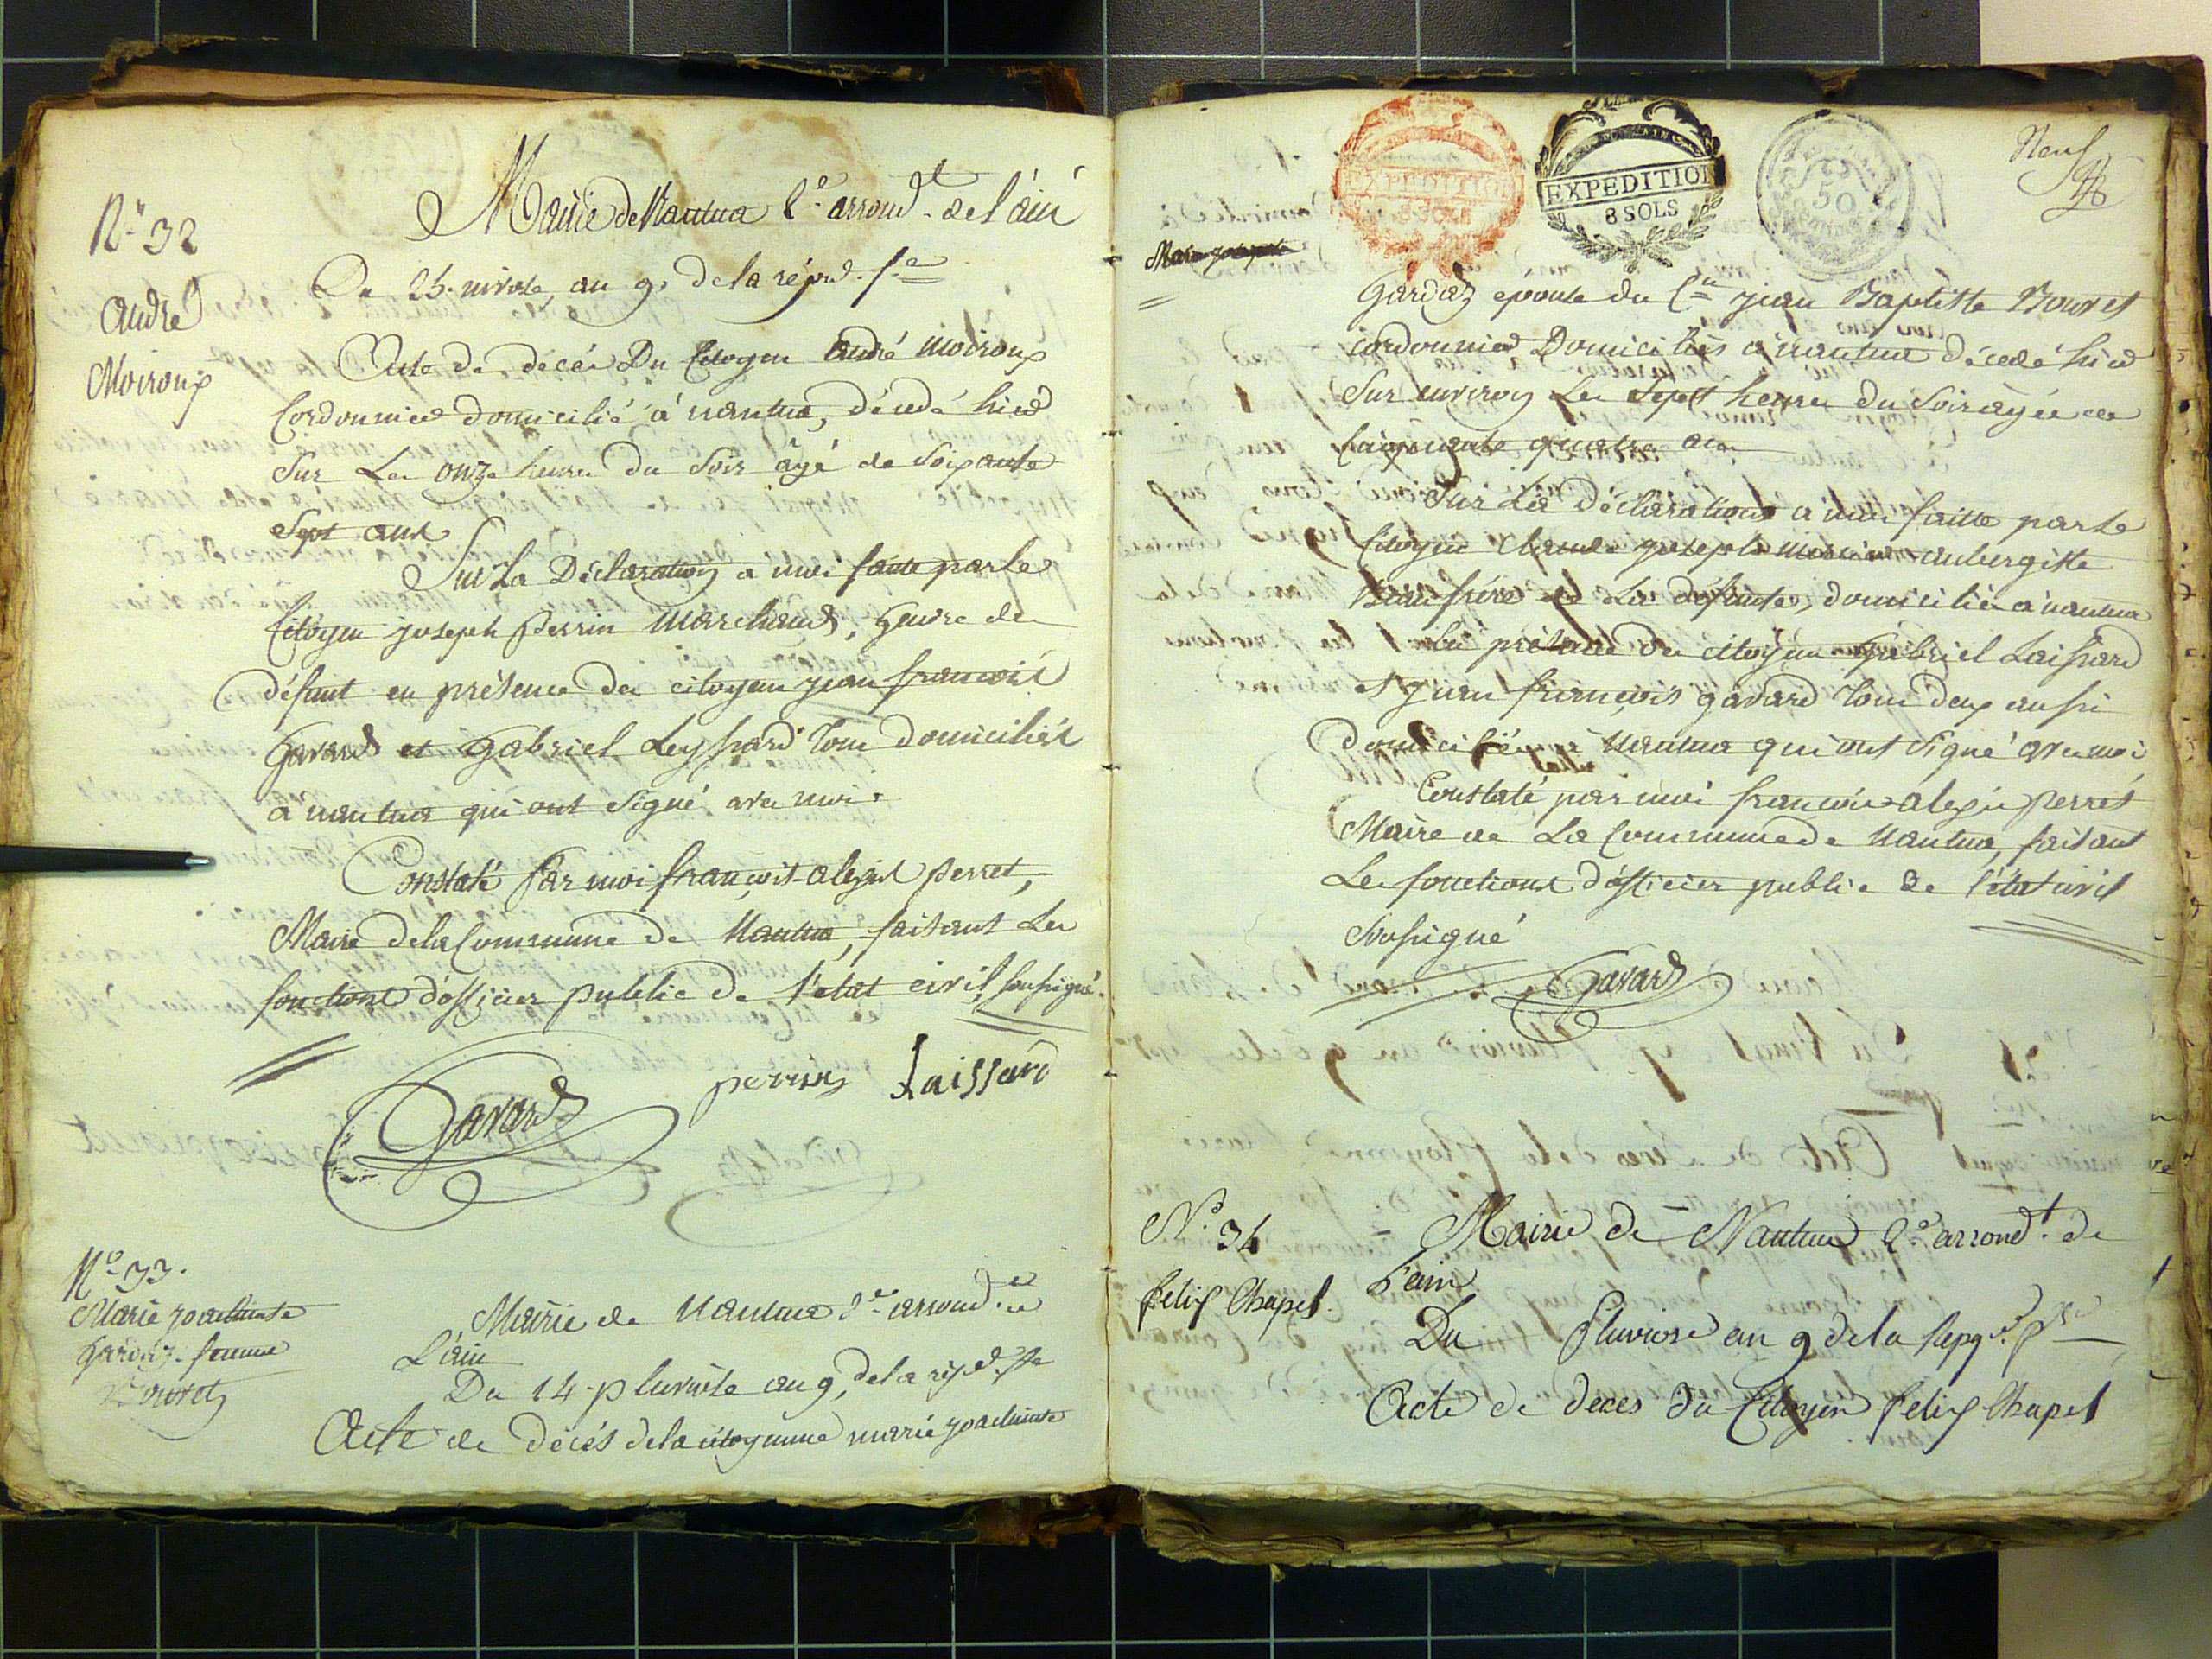 N° 32
André
Moiroux
Mairie de Nantua 2e arrond.t de l'ain
Du 25. nivose, an 9. de la répub. f.se
Acte de décès Du Citoyen andré moiroux
Cordonnier domicilié à nantua, décédé hier
Sur Les onze heures du Soir âgé de Soixante
Sept ans
Sur La Déclaration à moi faitte par le
Citoyen joseph perrin marchand, gendre du
défunt en présence des citoyens jean françois
Gavard et Gabriel Leyssard tous domiciliés
à nantua qui ont Signé avec moi.
Constaté Par moi françois-alexis perret,
Maire de la Commune de Nantua, faisant Les
fonctions d'officier public de l'état civil soussigné.
Gavard perrin Laissard
N° 33.
Marie
gardaz femme
Bouvet
Mairie de Nantua 2e arrond.t de
L'ain
Du 14 pluviôse an 9, de la rép. f.se
Acte de décès de la citoyenne marie
Neuf
EXPEDITION
8 SOLS
EXPEDITION
8 SOLS
50
gardaz épouse du C.en jean Baptiste Bouvet
cordonnier Domiciliés à nantua décédé hier
Sur environ Les Sept heures du Soir agée de
Cinquante quatre ans
Sur La déclaration à moi faitte par le
Citoyen Claude joseph aubergiste
Beau frère de La défunte, domicilié à nantua
En présence des citoyens Gabriel Laissard
et jean françois gavard tous deux aussi
domiciliés à Nantua qui ont Signé avec moi
Constaté par moi françois alexis perret
Maire de La Commune de Nantua, faisant
Les fonctions d'officier public de l'état civil
Soussigné
Gavard
N°. 34
felix Chapel.
Mairie de Nantua 2e arrond.t de
L'ain
Du Pluviose an 9 de la
Acte de deces du Citoyen felix Chapel